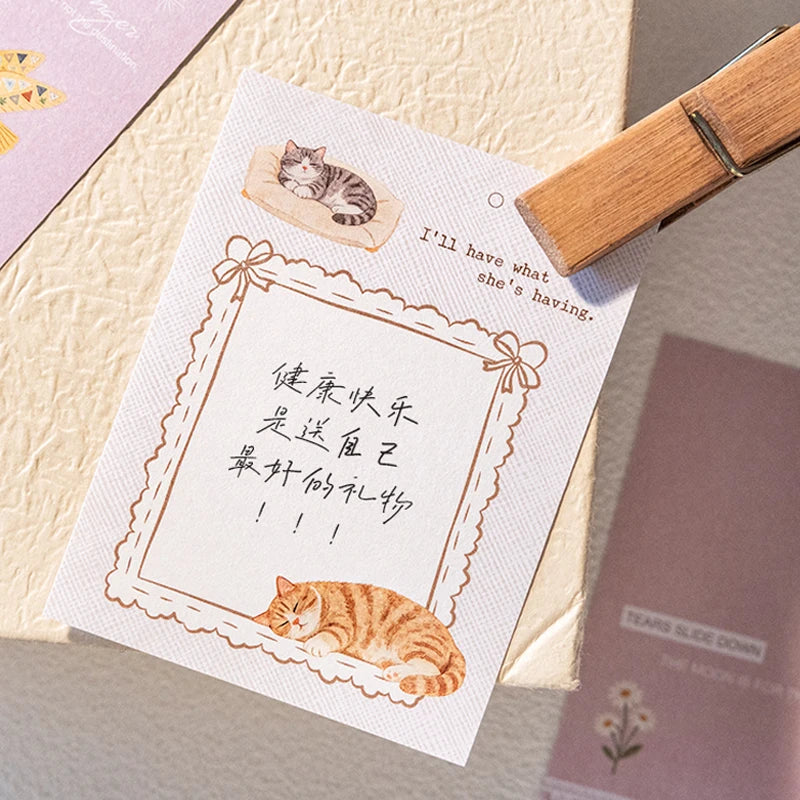 not the destination.
I'll have what
she's having.
健康快乐
是送自己
最好的礼物
! ! !
TEARS SLIDE DOWN
THE MOON IS FOR